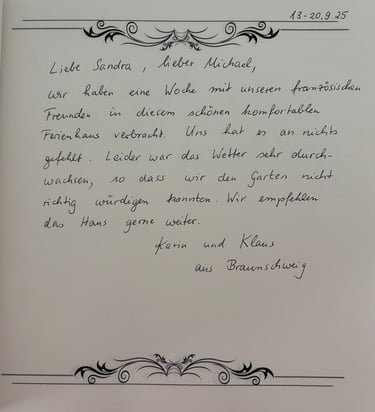 13-20.9.25
Liebe Sandra, lieber Michael,
wir haben eine Woche mit unseren französischen
Freunden in diesem schönen komfortablen
Ferienhaus verbracht. Uns hat es an nichts
gefehlt. Leider war das Wetter sehr durch-
wachsen, so dass wir den Garten nicht
richtig würdigen konnten. Wir empfehlen
das Haus gerne weiter.
Karin und Klaus
aus Braunschweig